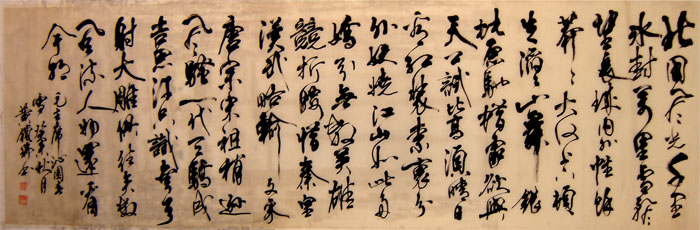 北国风光千里
冰封万里雪飘
望长城内外惟余
莽莽大河上下顿
失滔滔山舞银
蛇原驰蜡象欲与
天公试比高须晴日
看红装素裹分
外妖娆江山如此多
娇引无数英雄
竞折腰惜秦皇
汉武略输文采
唐宗宋祖稍逊
风骚一代天骄成
吉思汗只识弯弓
射大雕俱往矣数
风流人物还看
今朝
毛主席沁园春
雪 秋月